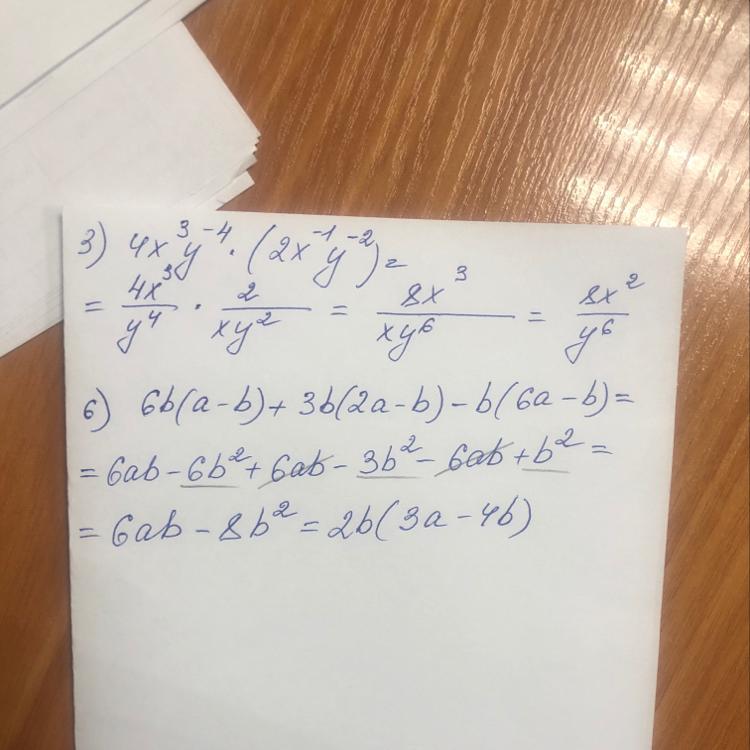 3) 4x³y⁻⁴ · (2x⁻¹y⁻²) =
= 4x³/y⁴ · 2/xy² = 8x³/xy⁶ = 8x²/y⁶
6) 6b(a-b) + 3b(2a-b) - b(6a-b) =
= 6ab - 6b² + 6ab - 3b² - 6ab + b² =
= 6ab - 8b² = 2b(3a-4b)